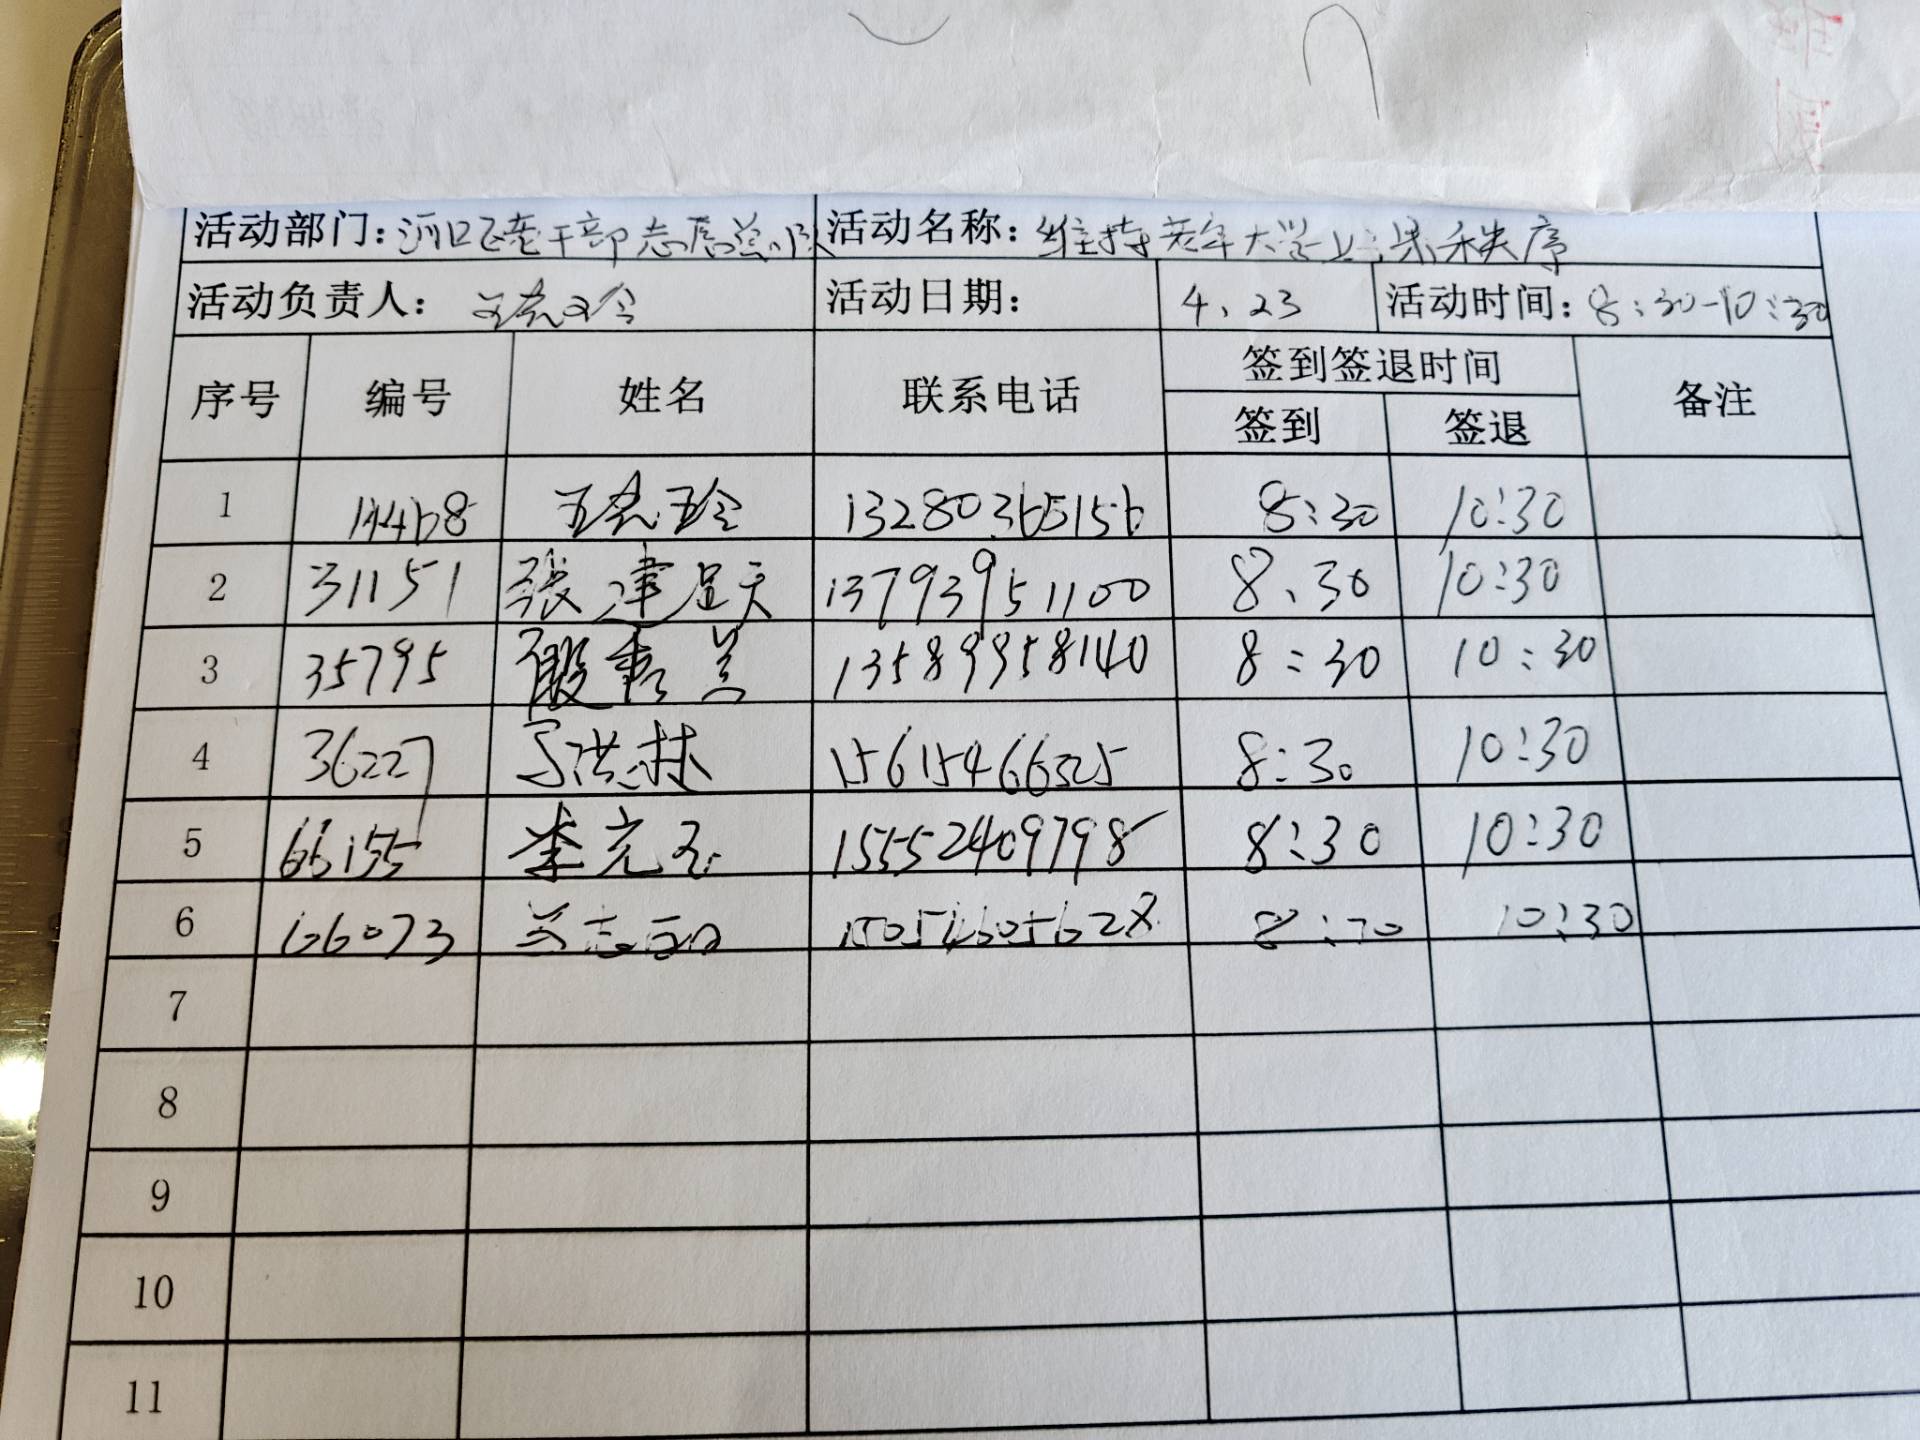 活动部门：河口区老干部志愿总队 活动名称：维持老年大学上课秩序
活动负责人： 活动日期： 4、23 活动时间：8:30-10:30
序号 编号 姓名 联系电话 签到签退时间 备注
签到 签退
1 14468 13280365156 8:30 10:30
2 31151 张津 13793951100 8、30 10:30
3 35795 殷秀兰 13589958140 8:30 10:30
4 36227 马洪林 15615466325 8:30 10:30
5 66155 李克玉 15552409798 8:30 10:30
6 66073 兰志 15054605628 8:30 10:30
7
8
9
10
11